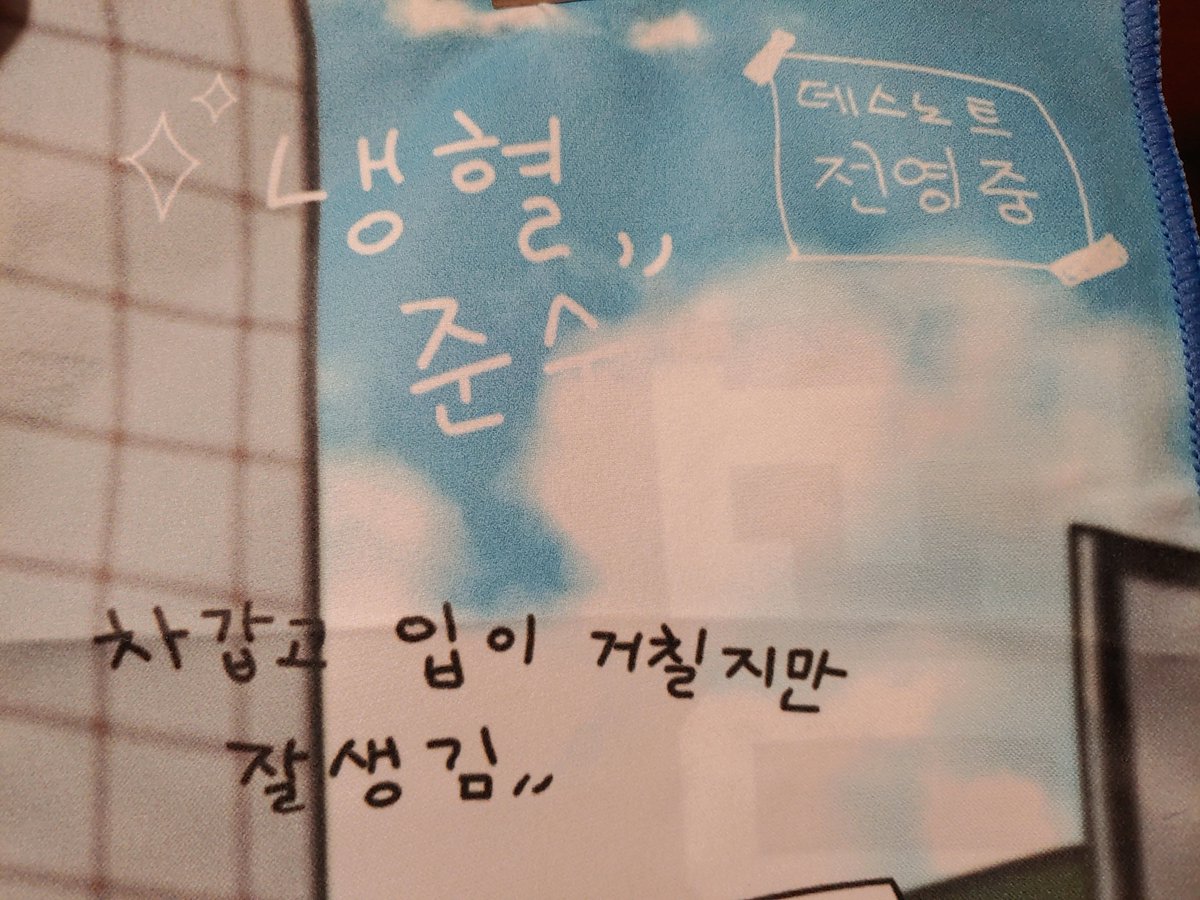 냉혈,,
준수
데스노트
전영중
차갑고 입이 거칠지만
잘생김,,